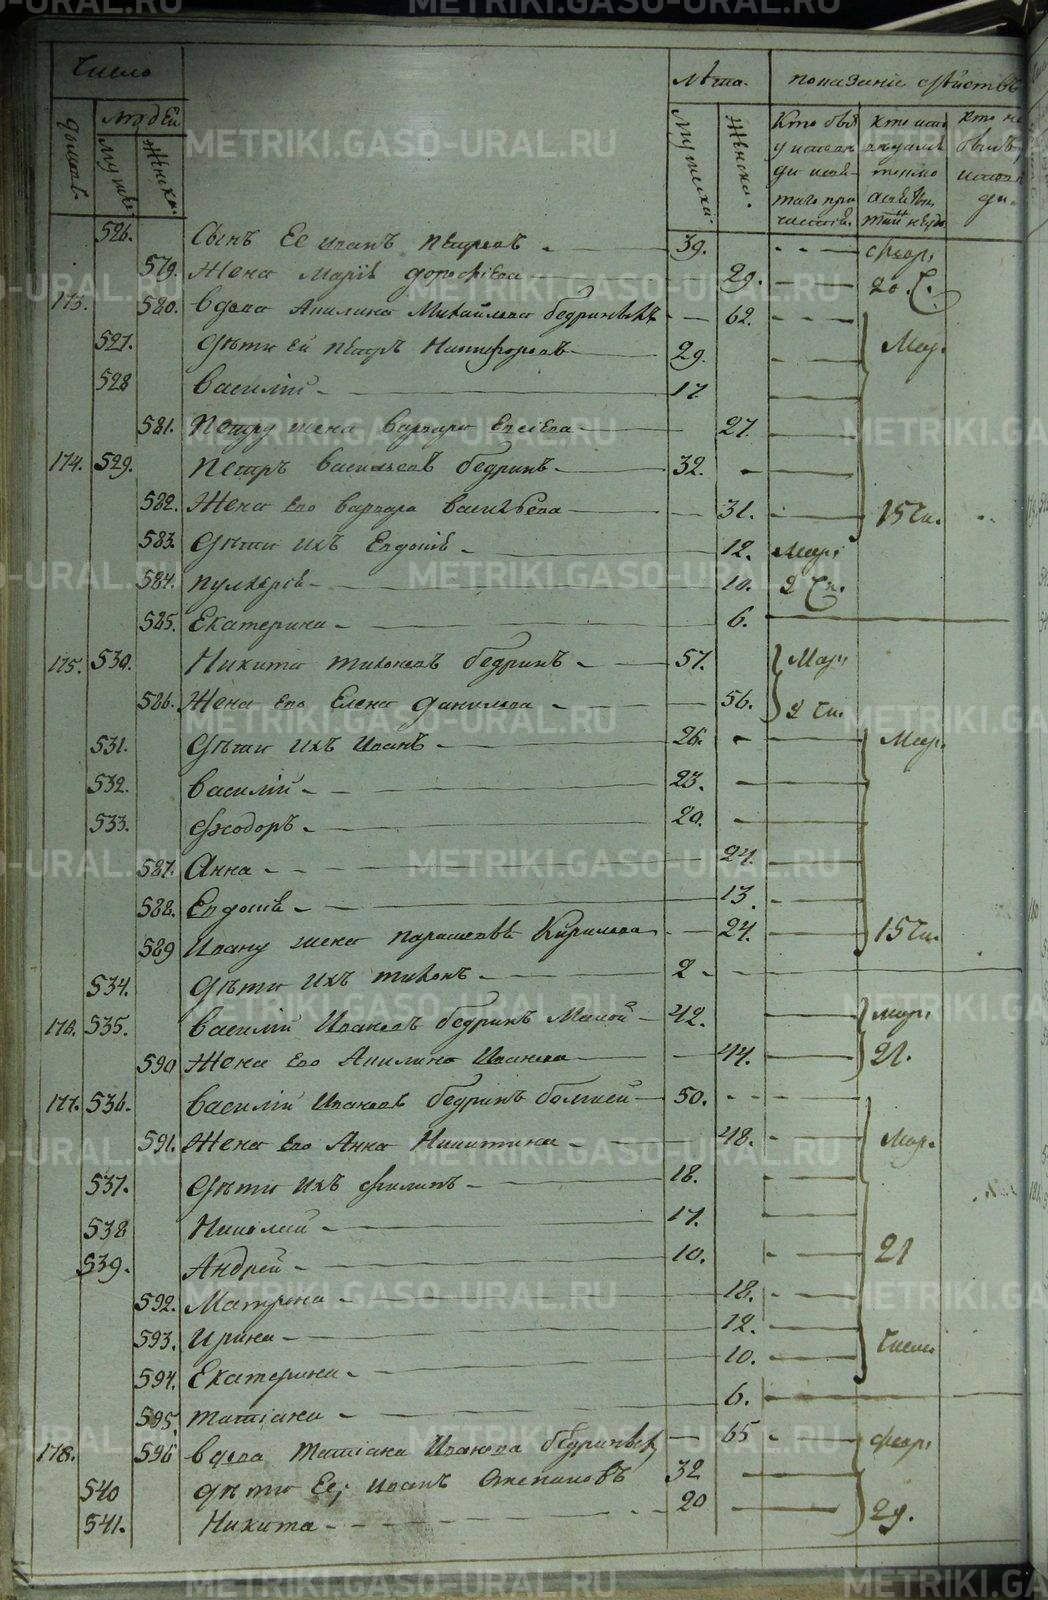 Число
Лѣта.
показаніе дѣйствъ
домовъ.
людей
мужеска.
женска.
мужеска.
женска.
Кто былъ
у исповѣ
ди
526. Сынъ Ее Иванъ Петровъ 39. февр.
579. Жена Марія Дорофіева 29. 20. Ч.
173. 580. вдова Акилина Михайлова бедриныхъ 62.
527. дѣти Ей Петръ Никифоровъ 29. Мар.
528 Василій 17
581. Петру жена Варвара 27.
174. 529. Петръ Васильевъ бедринъ 32.
582. Жена Его Варвара Васильева 31. 15 Чи.
583. дѣти ихъ Евдокія 12. Мар.
584. Пулхерія 10. 2 Чи.
585. Екатерина 6.
175. 530. Никита Тихоновъ бедринъ 57. Мар.
586. Жена Его Елена Данилова 56. 2 Чи.
531. дѣти ихъ Иванъ 26. Мар.
532. Василій 23.
533. Феодоръ 20.
587. Анна 24.
588. Евдокія 13.
589 Ивану жена Параскева Кирилова 24. 15 Чи.
534. дѣти ихъ Тихонъ 2
176. 535. Василій Ивановъ бедринъ Малой 42. мар.
590 Жена Его Акилина Иванова 44. 21.
177. 536. Василій Ивановъ бедринъ большей 50.
591. Жена Его Анна Никитина 48. Мар.
537. дѣти ихъ филипъ 18.
538 Николай 17.
539. Андрей 10. 21
592. Матрона 18.
593. Ирина 12. Числа
594. Екатерина 10.
595. Татіана 6.
178. 596 вдова Татіана Иванова бедриныхъ 65 февр.
540 дѣти Ее, Иванъ Степановъ 32
541. Никита 20 29.
METRIKI.GASO-URAL.RU